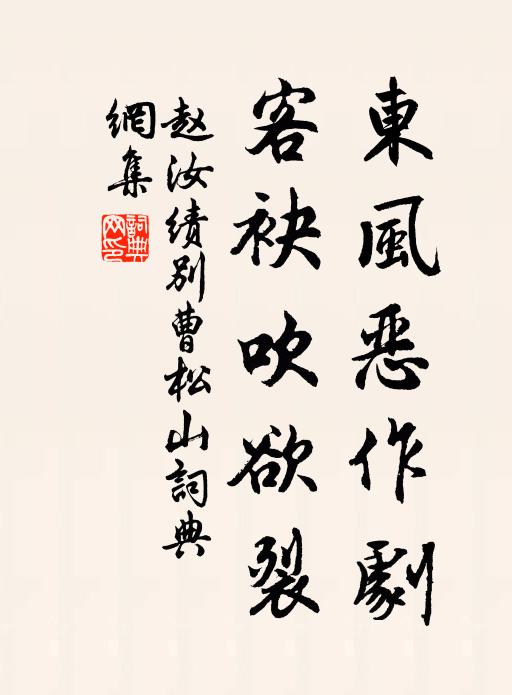 東風惡作劇
客袂吹欲裂
赵汝績别曹松山詞典
網集
詞典
网印